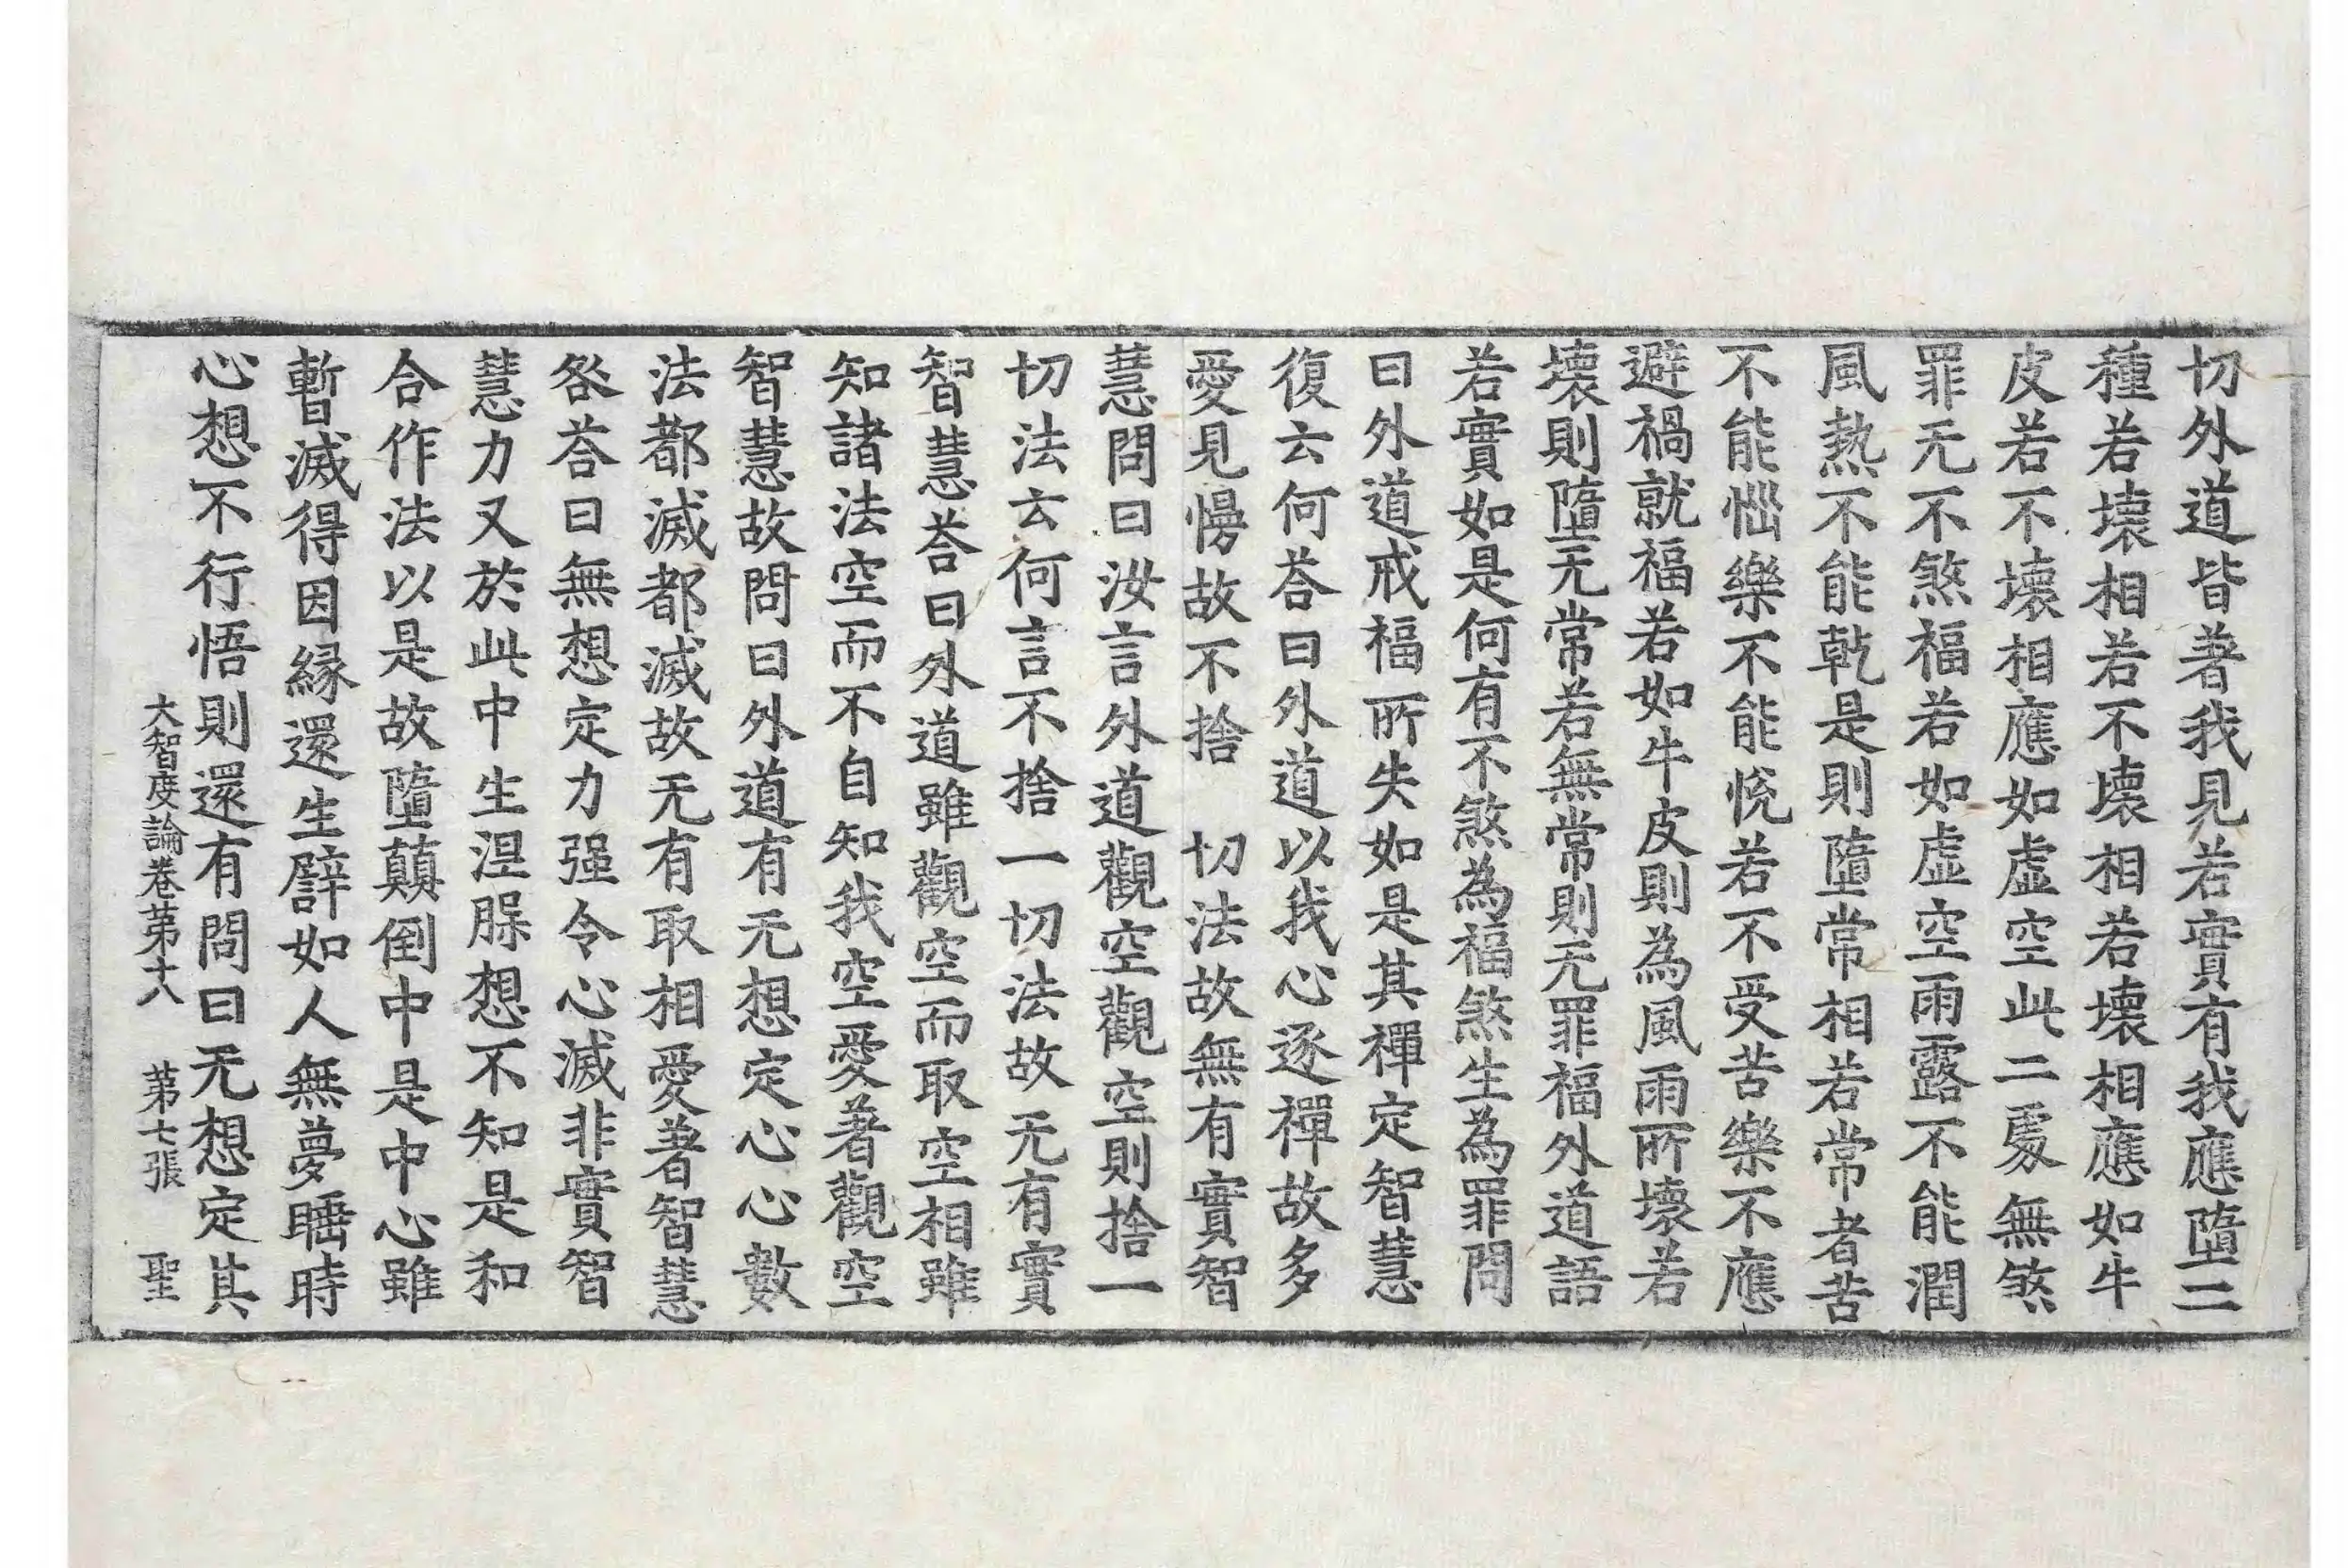 切外道皆著我見若實有我應墮二
種若壞相若不壞相若壞相應如牛
皮若不壞相應如虛空此二處無煞
罪无不煞福若如虛空雨露不能潤
風熱不能乾是則墮常相若常者苦
不能惱樂不能悅若不受苦樂不應
避禍就福若如牛皮則為風雨所壞若
壞則墮无常若無常則无罪福外道語
若實如是何有不煞為福煞生為罪問
曰外道戒福所失如是其禪定智慧
復云何荅曰外道以我心逐禪故多
愛見慢故不捨 切法故無有實智
慧問曰汝言外道觀空觀空則捨一
切法云何言不捨一切法故无有實
智慧荅曰外道雖觀空而取空相雖
知諸法空而不自知我空愛著觀空
智慧故問曰外道有无想定心心數
法都滅都滅故无有取相愛著智慧
咎荅曰無想定力强令心滅非實智
慧力又於此中生涅槃想不知是和
合作法以是故墮顛倒中是中心雖
暫滅得因緣還生譬如人無夢睡時
心想不行悟則還有問曰无想定其
大智度論卷第十八 第七張 聖